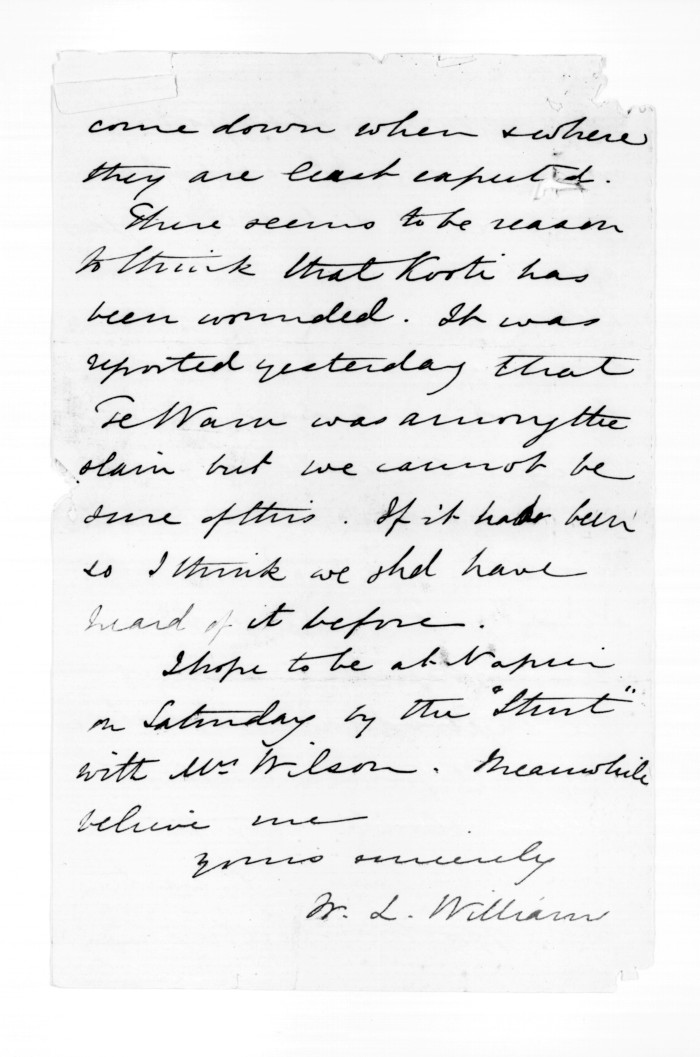 come down when & where
they are least expected.
There seems to be reason
to think that Kooti has
been wounded. It was
reported yesterday that
Te Waru was among the
slain but we cannot be
sure of this. If it had been
so I think we shd have
heard of it before.
I hope to be at Napier
on Saturday by the "Sturt"
with Mrs Wilson. Meanwhile
believe me
yours sincerely
W. L. Williams